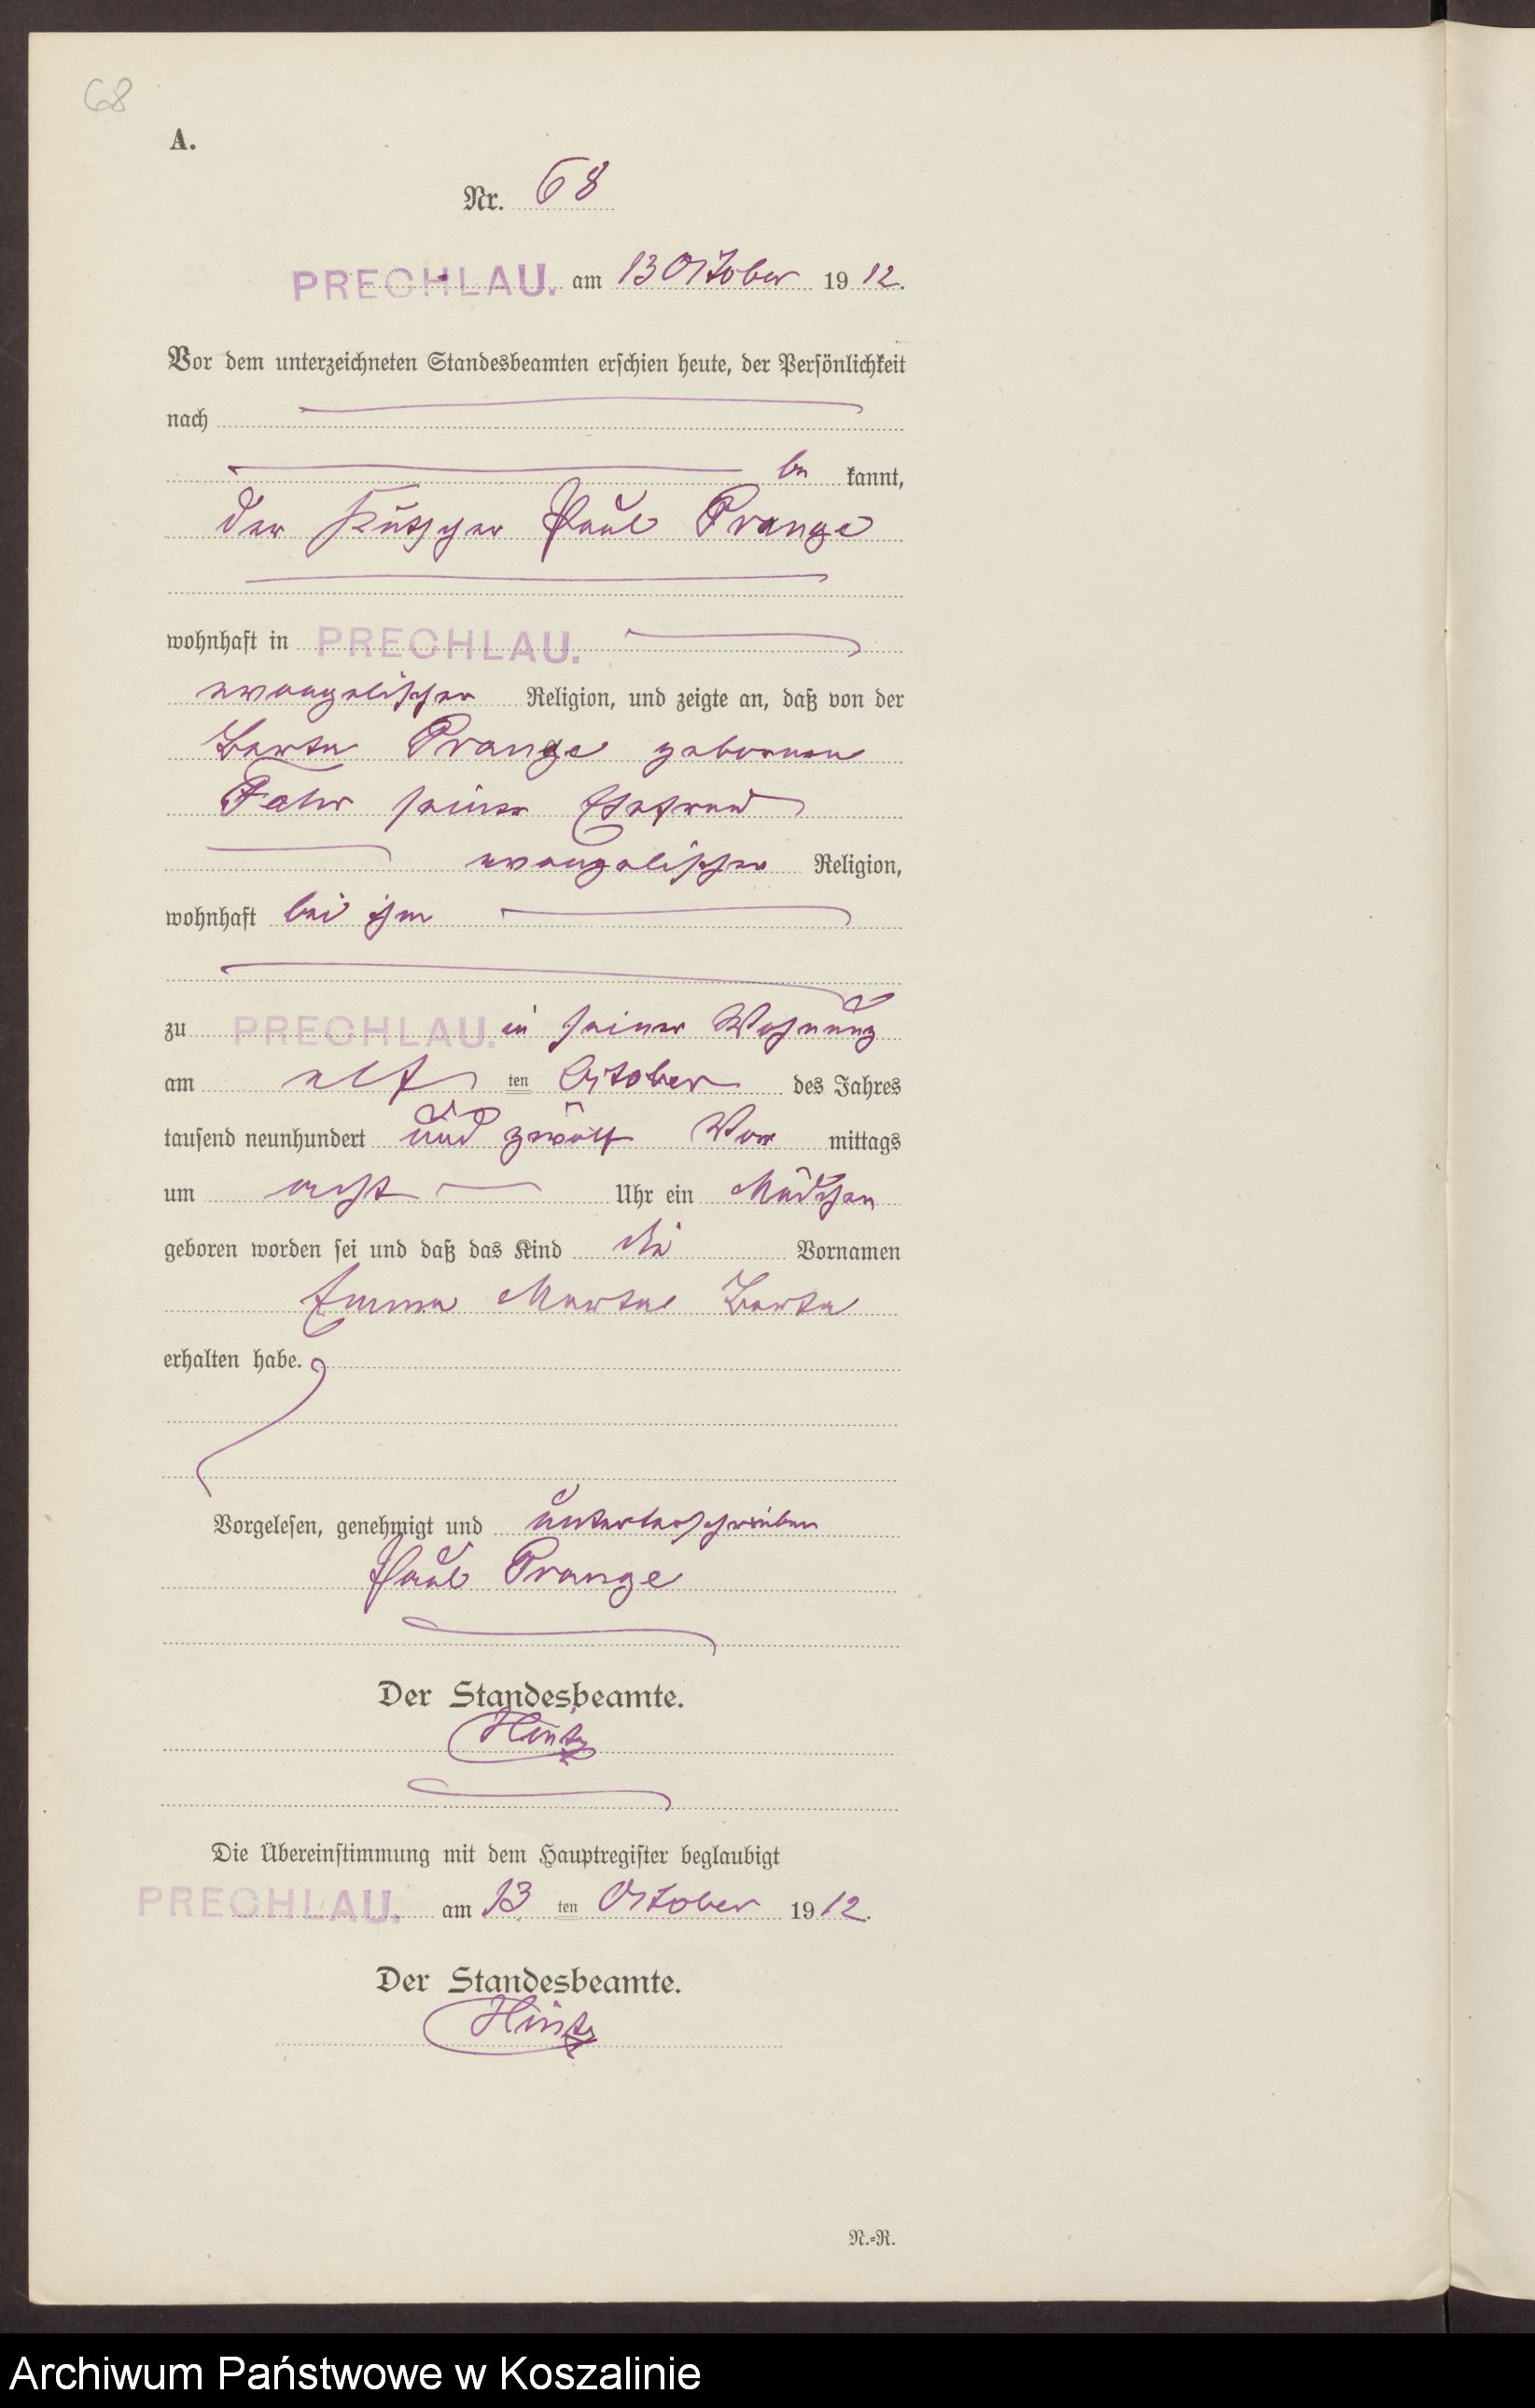 68
A.
Nr. 68
PRECHLAU. am 13 October 1912.
Vor dem unterzeichneten Standesbeamten erschien heute, der Persönlichkeit
nach
be kannt,
der Kutscher Paul Prange
wohnhaft in PRECHLAU.
evangelischer Religion, und zeigte an, daß von der
Berta Prange geborenen
seiner Ehefrau
evangelischer Religion,
wohnhaft bei ihm
zu PRECHLAU. in seiner Wohnung
am elf ten October des Jahres
tausend neunhundert und zwölf Vor mittags
um acht Uhr ein Mädchen
geboren worden sei und daß das Kind die Vornamen
Emma Martha Berta
erhalten habe.
Vorgelesen, genehmigt und
Paul Prange
Der Standesbeamte.
Hintz
Die Übereinstimmung mit dem Hauptregister beglaubigt
PRECHLAU. am 13 ten October 1912.
Der Standesbeamte.
Hintz
N.=R.
Archiwum Państwowe w Koszalinie